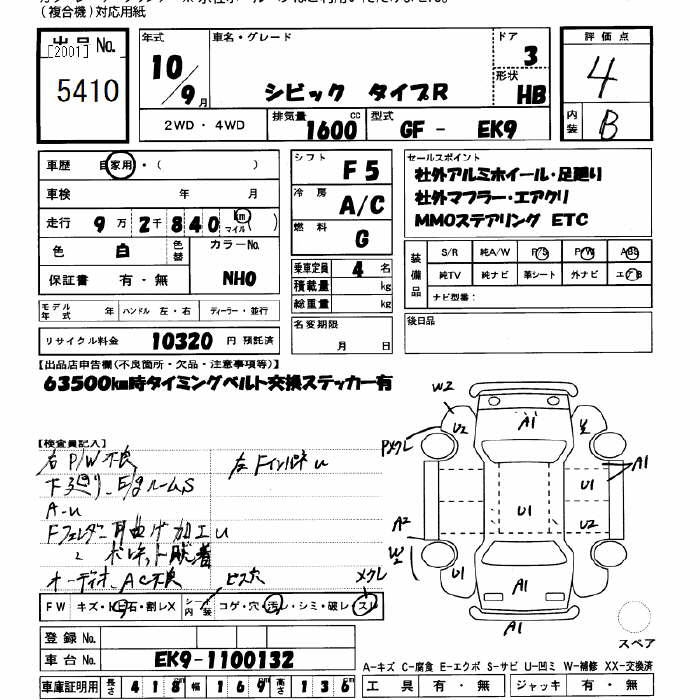 (複合機)対応用紙
出品 No.
[2001]
5410
年式
10/9月
車名・グレード
シビック タイプR
ドア
3
形状
HB
評価点
4
内装
B
2WD・4WD
排気量
1600 cc
型式
GF - EK9
車歴 自家用・( )
車検 年 月
走行 9万2千840 km マイル( )
色 白 色替 カラーNo.
保証書 有・無 NH0
シフト F5
冷房 A/C
燃料 G
乗車定員 4 名
積載量 kg
総重量 kg
セールスポイント
社外アルミホイール・足廻り
社外マフラー・エアクリ
MMOステアリング ETC
装備品
S/R 純A/W P/S P/W ABS
純TV 純ナビ 革シート 外ナビ エアB
ナビ型番:
モデル年式 年 ハンドル 左・右 ディーラー・並行
リサイクル料金 10320 円 預託済
名変期限
月 日
後日品
【出品店申告欄(不良箇所・欠品・注意事項等)】
63500km時タイミングベルト交換ステッカー有
【検査員記入】
右P/W不良
左Fインパネu
下廻り、E/gルームS
A-u
Fフェンダー耳曲げ加工u
オーディオ、AC不良
ビス穴
メクレ
FW キズ・ヒ石・割レX シート内装 コゲ・穴・汚レ・シミ・破レ・スレ
登録 No.
車台 No. EK9-1100132
車庫証明用 長さ 418 幅 169 高さ 136
W2
U2
A1
A1
U1
U1
U2
A2
W2
U1
A1
A1
スペア
A-キズ C-腐食 E-エクボ S-サビ U-凹ミ W-補修 XX-交換済
工具 有・無 ジャッキ 有・無